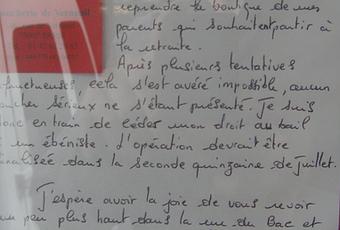 Boucherie de Verneuil
reprendre la boutique de mes
parents qui souhaitent partir à
la retraite.
Après plusieurs tentatives
infructueuses, cela s'est avéré impossible, aucun
boucher sérieux ne s'étant présenté. Je suis
donc en train de céder mon droit au bail
à un ébéniste. L'opération devrait être
finalisée dans la seconde quinzaine de Juillet.
J'espère avoir la joie de vous revoir
un peu plus haut dans la rue du Bac et